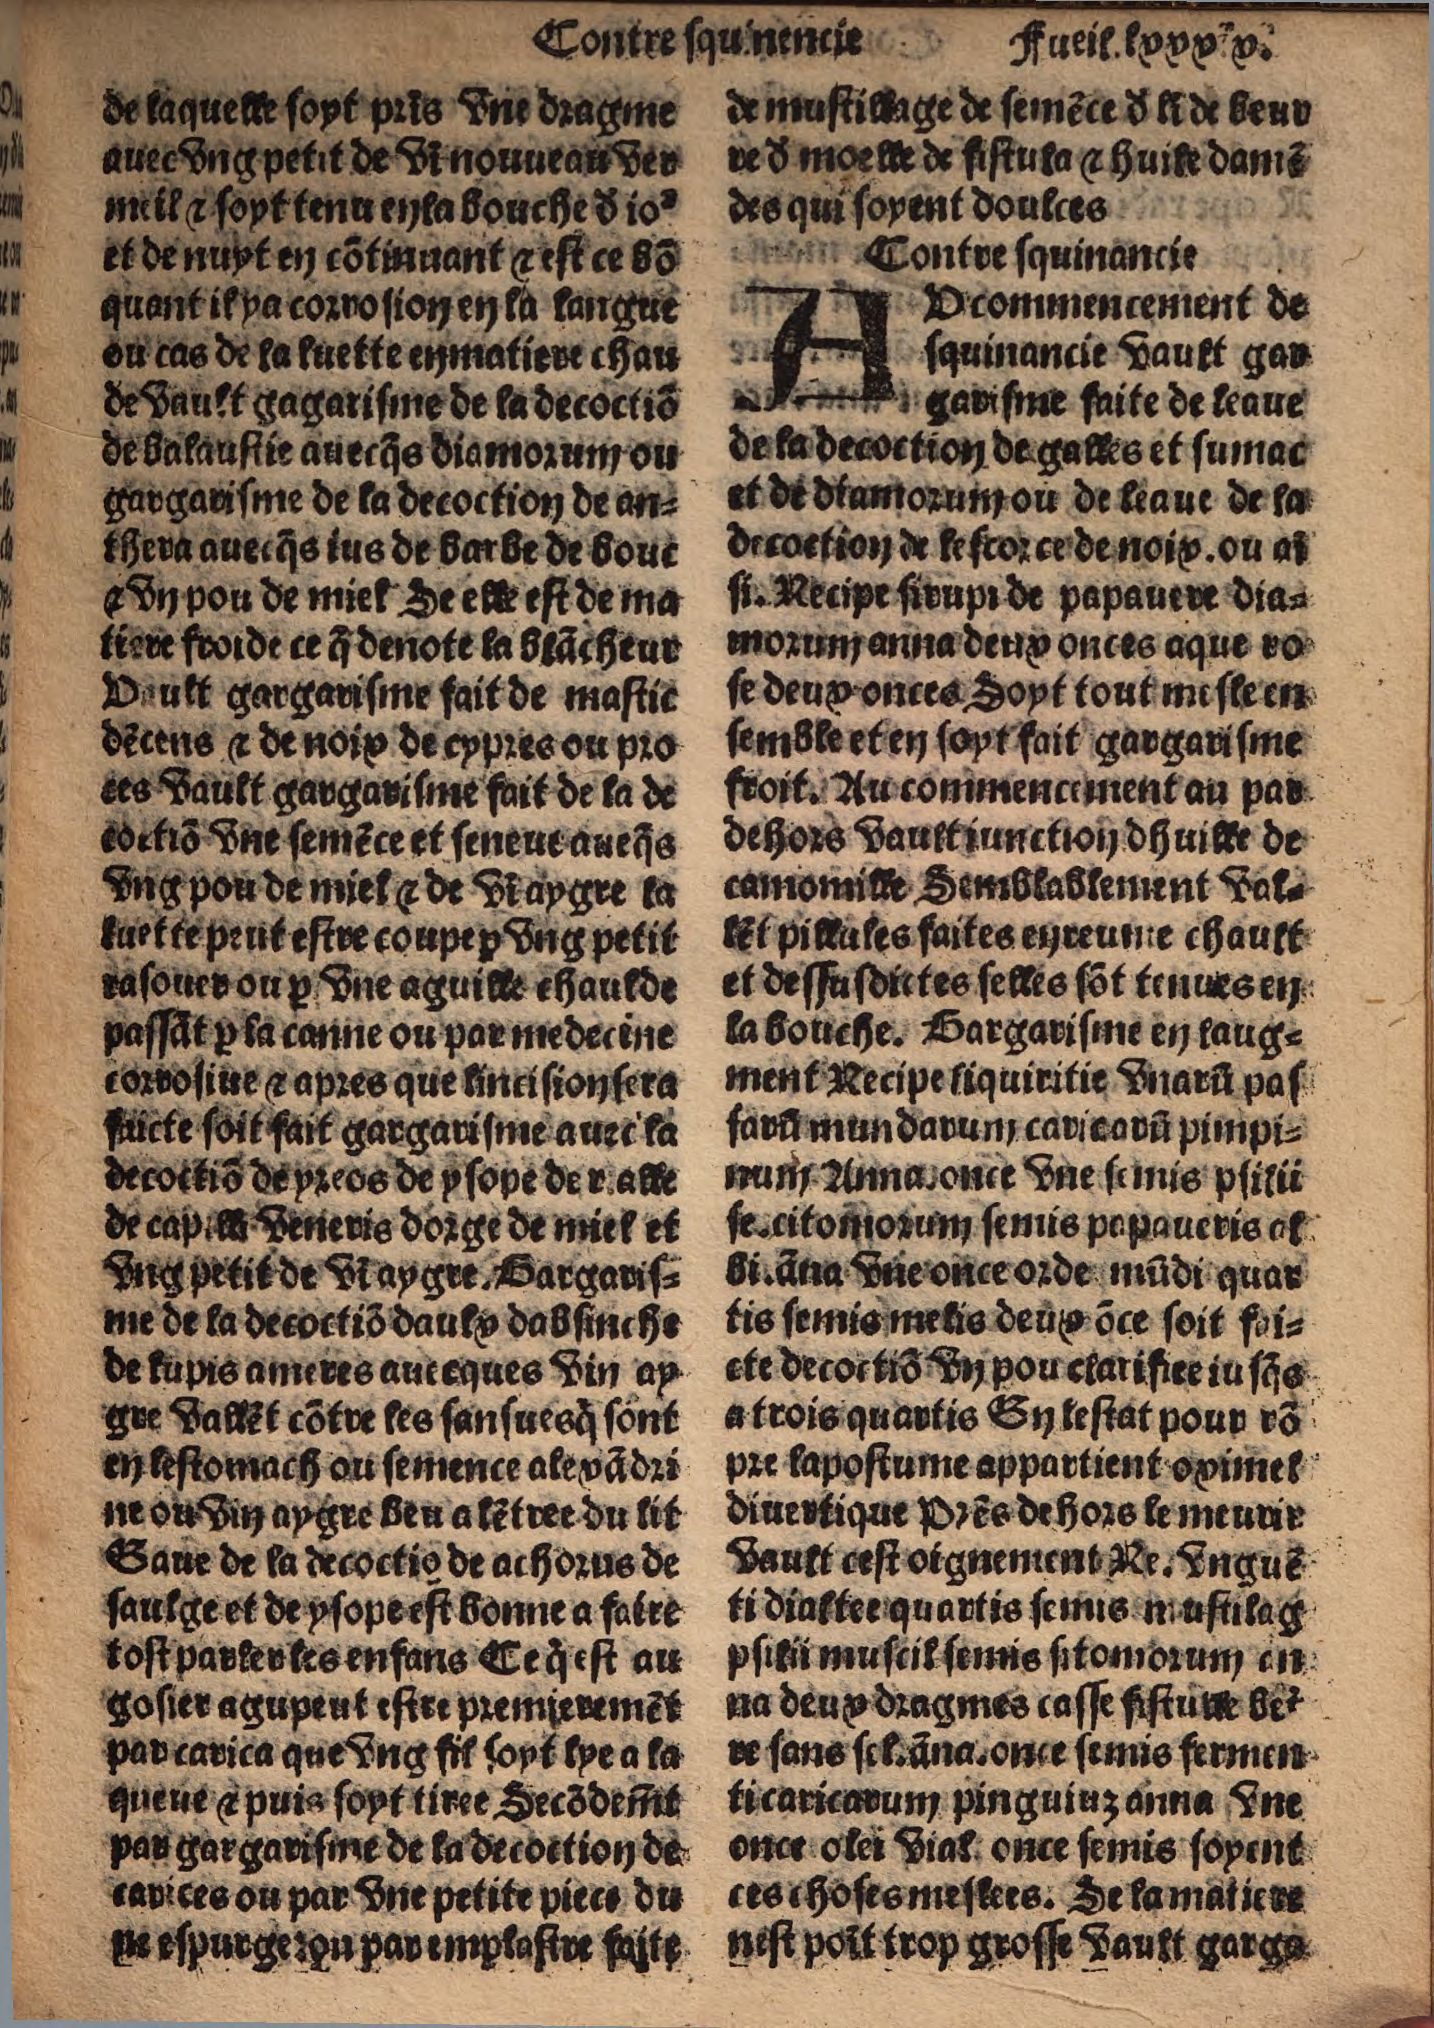 Contre squinencie Fueil. lxxxv.
de laquelle soyt prīs vne dragme
auec vng petit de vī nouueau ver
meil ⁊ soyt tenu en la bouche d̄ ioᵘ
et de nuyt en cōtinuant ⁊ est ce bō
quant il ya corrosion en la langue
ou cas de la luette en matiere chau
de vault gagarisme de la decoctiō
de balaustie auecq̄s diamorum ou
gargarisme de la decoction de an-
thera auecq̄s ius de barbe de bouc
⁊ vn pou de miel Se elle est de ma
tiere froide ce q̄ denote la blācheur
Vault gargarisme fait de mastic
dēcens ⁊ de noix de cypres ou pro
ces vault gargarisme fait de la de
coctiō vne semēce et seneue aueq̄s
vng pou de miel ⁊ de vī aygre la
luette peut estre coupe ꝑ vng petit
rasouer ou ꝑ vne aguille chaulde
passāt ꝑ la canne ou par medecine
corrosiue ⁊ apres que lincision sera
faicte soit fait gargarisme auec la
decoctiō de yreos de ysope de r.alle
de capilli veneris dorge de miel et
vng petit de vī aygre. Gargaris-
me de la decoctiō daulx dabsinche
de lupis ameres auecques vin ay
gre vallēt cōtre les sansues q̄ sont
en lestomach ou semence alexādri
ne ou vin aygre beu a lētree du lit
Eaue de la decoctiō de achorus de
saulge et de ysope est bonne a faire
tost parler les enfans Ce q̄ est au
gosier agu peut estre premieremēt
par carica que vng fil soyt lye a la
queue ⁊ puis soyt tiree Secōdemēt
par gargarisme de la decoction de
carices ou par vne petite piece du
ne espurge ou par emplastre faite
de mustillage de semēce d̄ lī de beur
re d̄ moelle de fistula ⁊ huile damē
des qui soyent doulces
Contre squinancie
AV commencement de
squinancie vault gar
garisme faite de leaue
de la decoction de galles et sumac
et de diamorum ou de leaue de la
decoction de lescorce de noix. ou aī
si. Recipe sirupi de papauere dia-
morum anna deux onces aque ro
se deux onces Soyt tout mesle en
semble et en soyt fait gargarisme
froit. Au commencement au par
dehors vault iunction dhuille de
camomille Semblablement val-
lēt pillules faites en reume chault
et dessusdictes selles sōt tenues en
la bouche. Gargarisme en laug-
ment Recipe liquiritie vnarū pas
sarū mundarum caricarū pimpi-
num Anna.once vne semis psilii
se.citomorum semis papaueris al
bi.āna vne once orde mūdi quar
tis semis melis deux ōce soit fai-
cte decoctiō vn pou clarifiee iusq̄s
a trois quartis En lestat pour rō
pre lapostume appartient oximel
diuertique Prēs dehors le meurir
vault cest oignement Re. vnguē
ti dialtee quartis semis mustilag
psilii muscil semis sitomorum an
na deux dragmes casse fistulle beᵘ
re sans sel.āna.once semis fermen
ti caricarum pinguiuz anna vne
once olei vial once semis soyent
ces choses meslees. Se la matiere
nest poīt trop grosse vault garga